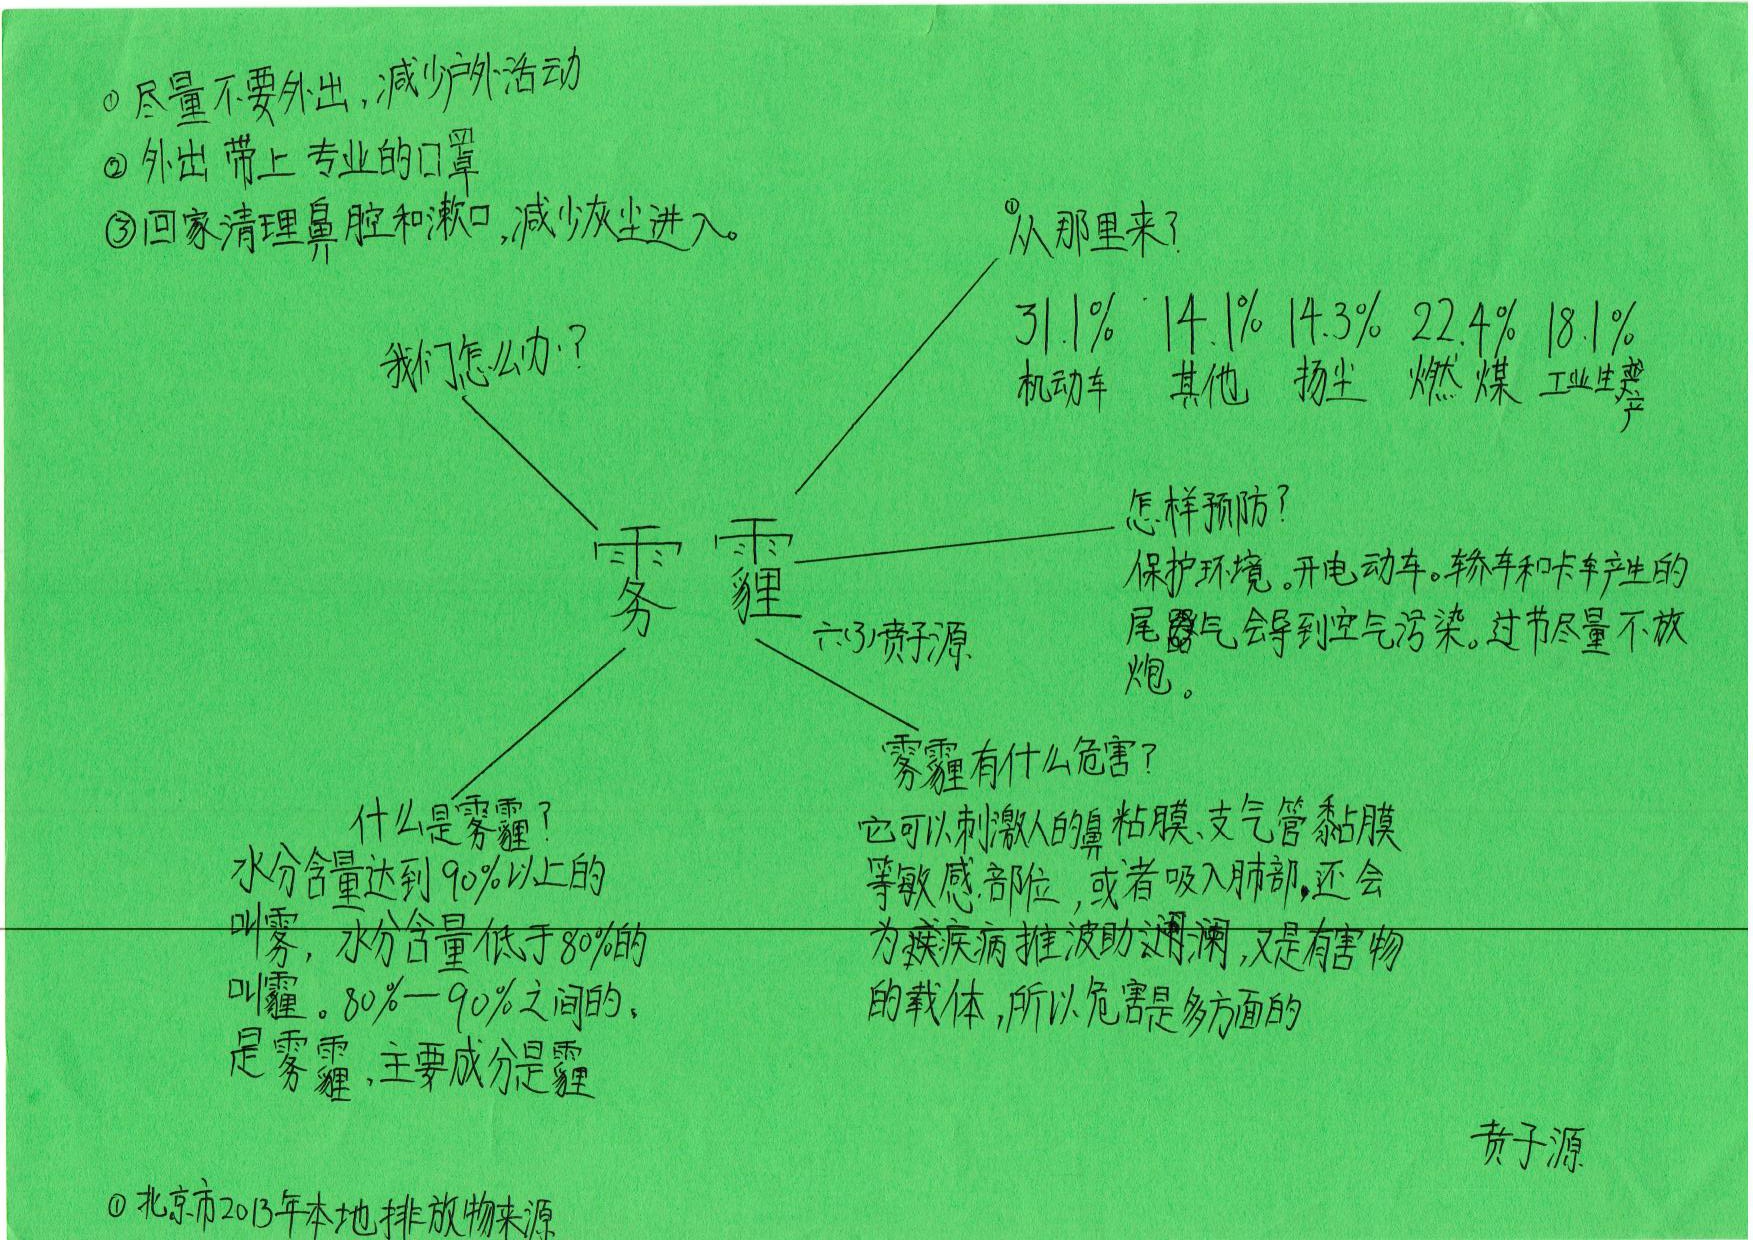 ① 尽量不要外出,减少户外活动
② 外出 带上 专业的口罩
③ 回家清理鼻腔和漱口,减少灰尘进入。
我们怎么办?
①从那里来?
31.1% 14.1% 14.3% 22.4% 18.1%
机动车 其他 扬尘 燃煤 工业生产
雾霾
六(3)贲子源
怎样预防?
保护环境。开电动车。轿车和卡车产生的
尾气会导到空气污染。过节尽量不放
炮。
什么是雾霾?
水分含量达到90%以上的
叫雾,水分含量低于80%的
叫霾。80%—90%之间的、
是雾霾,主要成分是霾
雾霾有什么危害?
它可以刺激人的鼻粘膜、支气管黏膜
等敏感部位,或者吸入肺部,还会
为疾病推波助澜,又是有害物
的载体,所以危害是多方面的
贲子源
① 北京市2013年本地排放物来源